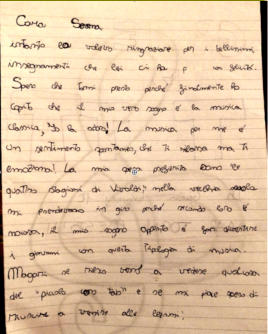 Cara Serena
intanto la volevo ringraziare per i bellissimi
insegnamenti che lei ci fa
Spero che torni presto perché finalmente ho
capito che il mio vero sogno è la musica
classica, Io la adoro! La musica per me è
un sentimento spontaneo, che ti rilassa ma ti
emoziona! La mia opera preferita sono le
quattro stagioni di Vivaldi, nella vecchia scuola
mi prendevano in giro perché secondo loro è
noiosa, il mio sogno appunto è far divertire
i giovani con questa tipologia di musica.
Magari se riesco verrò a vedere qualcosa
del "piccolo coro" e se mi piace spero di
riuscire a venire alle lezioni;